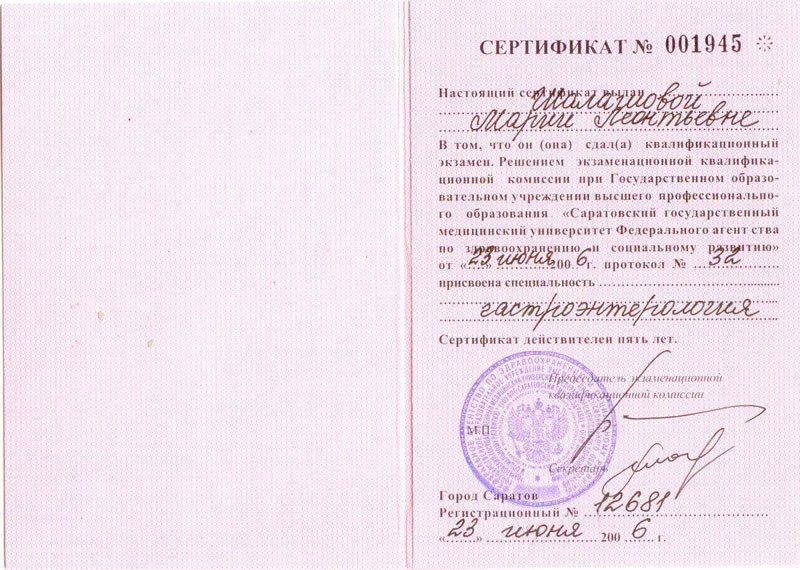 СЕРТИФИКАТ № 001945
Настоящий сертификат выдан
Марии Леонтьевне
В том, что он (она) сдал(а) квалификационный
экзамен. Решением экзаменационной квалифика-
ционной комиссии при Государственном образо-
вательном учреждении высшего профессионально-
го образования «Саратовский государственный
медицинский университет Федерального агент ства
по здравоохранению и социальному развитию»
от «23» июня 2006 г. протокол № 32
присвоена специальность
гастроэнтерология
Сертификат действителен пять лет.
Председатель экзаменационной
квалификационной комиссии
М.П.
Секретарь
Город Саратов
Регистрационный № 12681
«23» июня 2006 г.